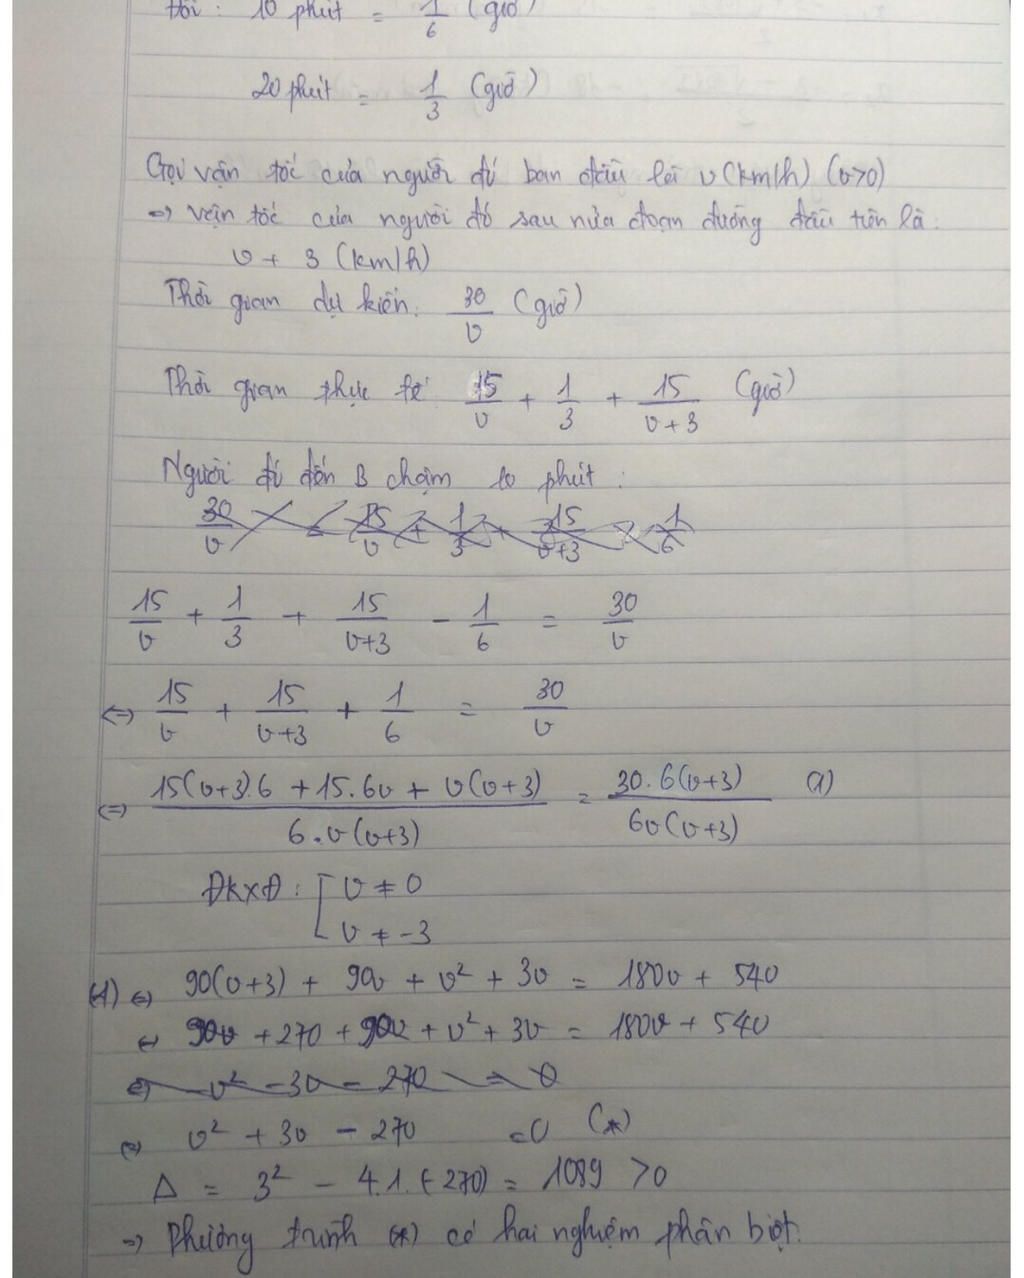 Đổi : 10 phút = 1/6 (giờ)
20 phút = 1/3 (giờ)
Gọi vận tốc của người đó ban đầu là v (km/h) (v>0)
=> vận tốc của người đó sau nửa đoạn đường đầu tiên là :
v + 3 (km/h)
Thời gian dự kiến: 30/v (giờ)
Thời gian thực tế: 15/v + 1/3 + 15/(v+3) (giờ)
Người đó đến B chậm 10 phút :
15/v + 1/3 + 15/(v+3) - 1/6 = 30/v
<=> 15/v + 15/(v+3) + 1/6 = 30/v
<=> (15(v+3).6 + 15.6v + v(v+3))/(6.v(v+3)) = (30.6(v+3))/(6v(v+3)) (1)
ĐKXĐ : [ v ≠ 0
v ≠ -3
(1) <=> 90(v+3) + 90v + v² + 3v = 180v + 540
<=> 90v + 270 + 90v + v² + 3v = 180v + 540
<=> v² - 3v - 270 = 0
<=> v² + 3v - 270 = 0 (*)
Δ = 3² - 4.1.(-270) = 1089 > 0
=> Phương trình (*) có hai nghiệm phân biệt.